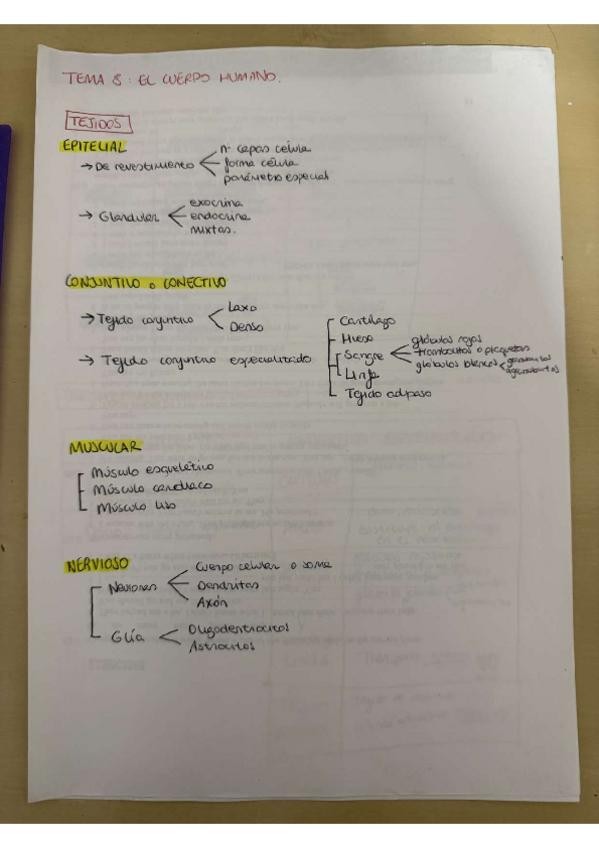 TEMA 8: EL CUERPO HUMANO.
TEJIDOS
EPITELIAL
→ De revestimiento
nº capas célula
forma célula
parámetro especial
→ Glandular
exocrina
endocrina
mixtas.
CONJUNTIVO o CONECTIVO
→ Tejido conjuntivo
Laxo
Denso
→ Tejido conjuntivo especializado
Cartílago
Hueso
Sangre
glóbulos rojos
trombocitos o plaquetas
glóbulos blancos
granulocitos
agranulocitos
Linfa
Tejido adiposo
MUSCULAR
Músculo esquelético
Músculo cardíaco
Músculo liso
NERVIOSO
Neuronas
Cuerpo celular o soma
Dendritas
Axón
Glía
Oligodentrocitos
Astrocitos